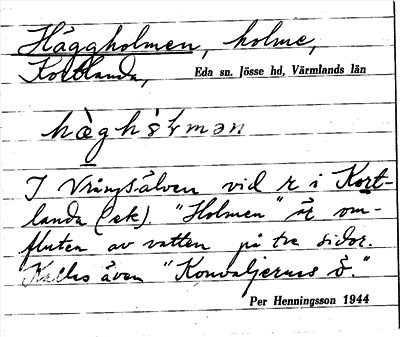 Häggholmen, holme,
Kortlanda, Eda sn. Jösse hd, Värmlands län
I Vrångsälven vid r i Kort-
landa (ek). "Holmen" är om-
fluten av vatten på tre sidor.
Kallas även "Konvaljernas ö."
Per Henningsson 1944